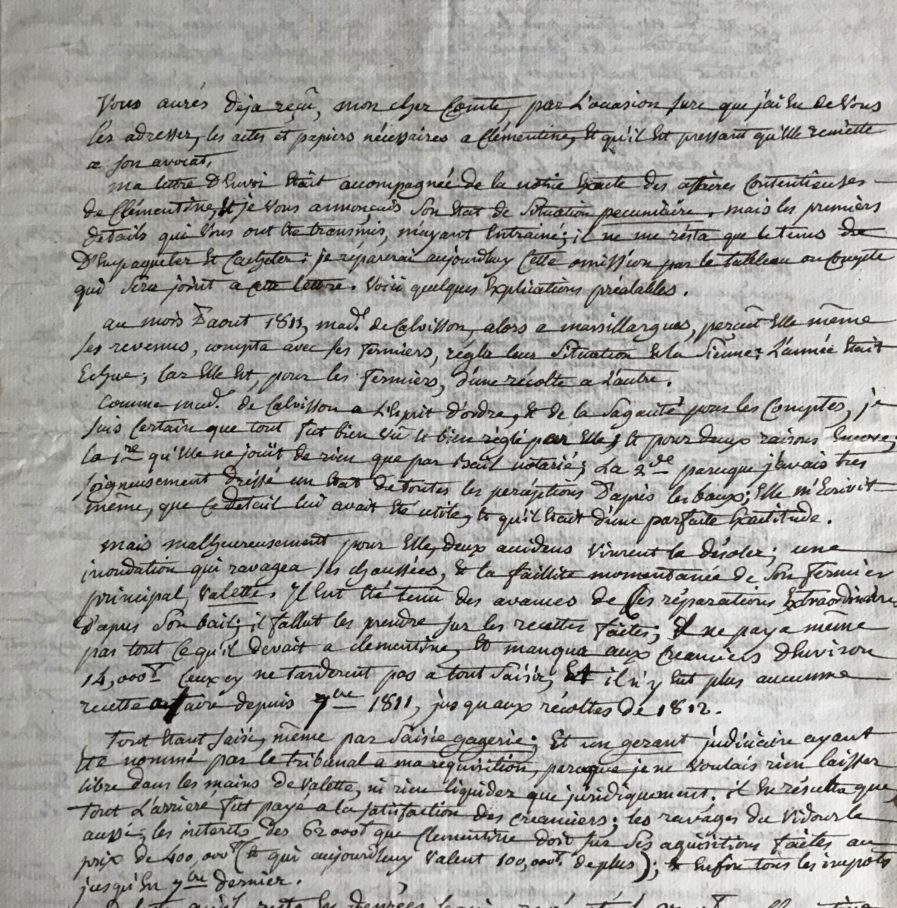 Vous aurés deja reçu, mon cher Comte, par l'occasion sure que j'ai eu de vous
les adresser, les actes et papiers nécessaires a Clémentine, et qu'il est pressant qu'elle remette
a son avocat.
ma lettre d'envoi était accompagnée de la notice exacte des affaires Contentieuses
de Clémentine, et je vous annonçais son état de situation pecuniaire. mais les premiers
détails qui vous ont été transmis, m'ayant entrainé; il ne me resta que le tems de
d'empaqueter et cacheter: je réparerai aujourdhuy cette omission par le tableau ou Compte
qui sera joint a cette lettre. Voici quelques explications préalables.
au mois d'aout 1811, mad.e de Calvisson, alors a marsillargues, perçut elle même
ses revenus, compta avec ses fermiers, régla leur situation et la sienne: L'année était
echue; car elle est pour les fermiers, d'une récolte a l'autre.
Comme mad.e de Calvisson a l'esprit d'ordre, et de la sagacité pour les Comptes, je
suis certain que tout fut bien vu et bien réglé par elle; et pour deux raisons encore;
la 1re qu'elle ne jouit de rien que par bail notarié; La 2de parceque j'avais très
soigneusement dressé un état de toutes les perceptions d'après les baux; elle m'écrivit
même, que ce detail lui avait été utile, et qu'il était d'une parfaite exactitude.
mais malheureusement pour elle, deux accidens vinrent la désoler; une
inondation qui ravagea ses chaussées, et la faillite momentanée de son fermier
principal, Valette. Il eut été tenu des avances de ces réparations extraordinaires
d'apres son bail; il fallut les prendre sur les recettes faites; il ne paya meme
pas tout ce qu'il devait a clementine, et manqua aux Creanciers d'environ
14,000 Ceux cy ne tarderent pas a tout saisir, et il n'y eut plus aucunne
recette a faire depuis 7bre 1811, jusqu'aux récoltes de 1812.
Tout étant saisi, même par saisie gagerie; et un gerant judiciaire ayant
été nommé par le tribunal a ma requisition, parceque je ne voulais rien laisser
libre dans les mains de Valette, ni rien liquider que juridiquement; il en résulta que
tout l'arriere fut payé a la satisfaction des creanciers; les ravages du Vidourle
aussi; les interets des 62 000 que Clementine doit sur ses aquisitions faites au
prix de 400,000 (et qui aujourdhuy valent 100,000 de plus); et enfin tous les impots
jusqu'en 7bre dernier.